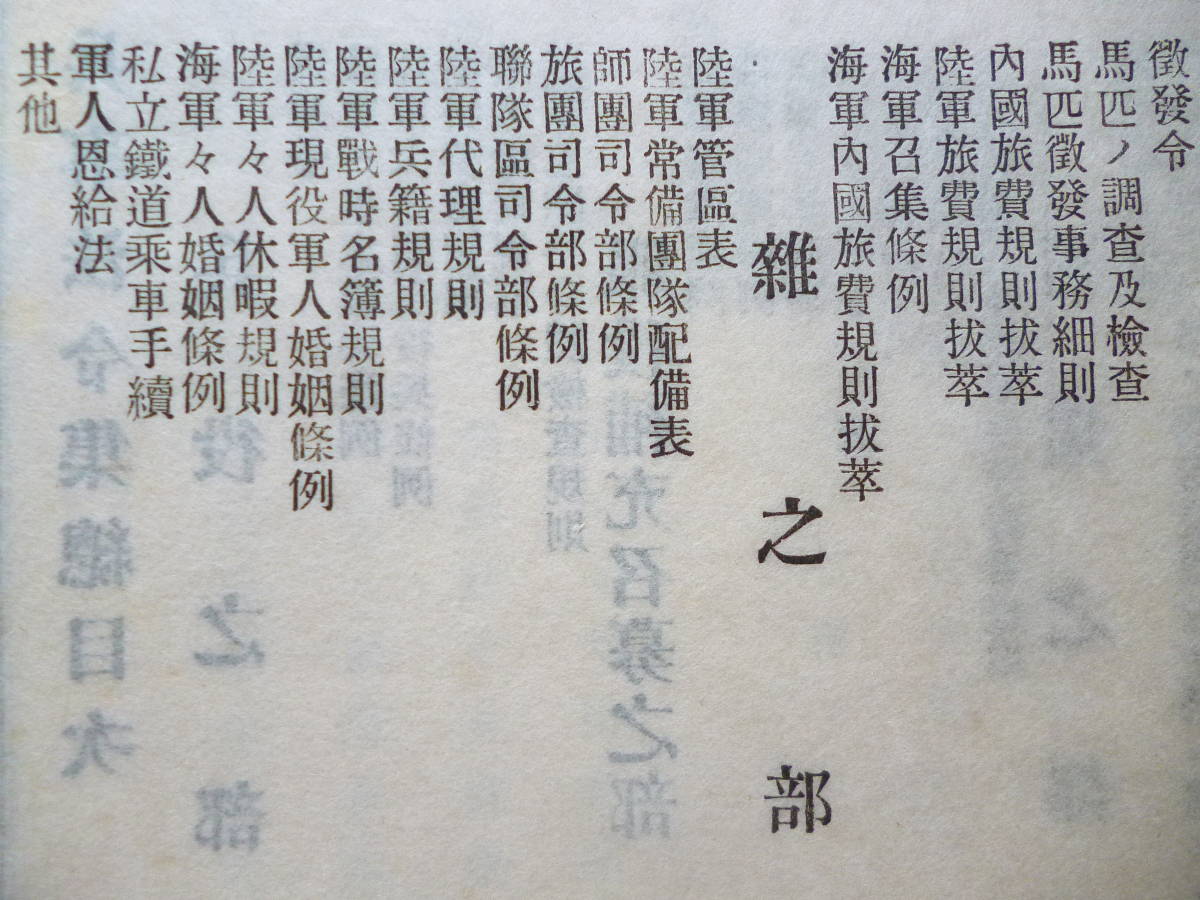 徵發令
馬匹ノ調査及檢査
馬匹徵發事務細則
內國旅費規則拔萃
陸軍旅費規則拔萃
海軍召集條例
海軍內國旅費規則拔萃
雜之部
陸軍管區表
陸軍常備團隊配備表
師團司令部條例
旅團司令部條例
聯隊區司令部條例
陸軍代理規則
陸軍兵籍規則
陸軍戰時名簿規則
陸軍現役軍人婚姻條例
陸軍々人休暇規則
海軍々人婚姻條例
私立鐵道乘車手續
軍人恩給法
其他